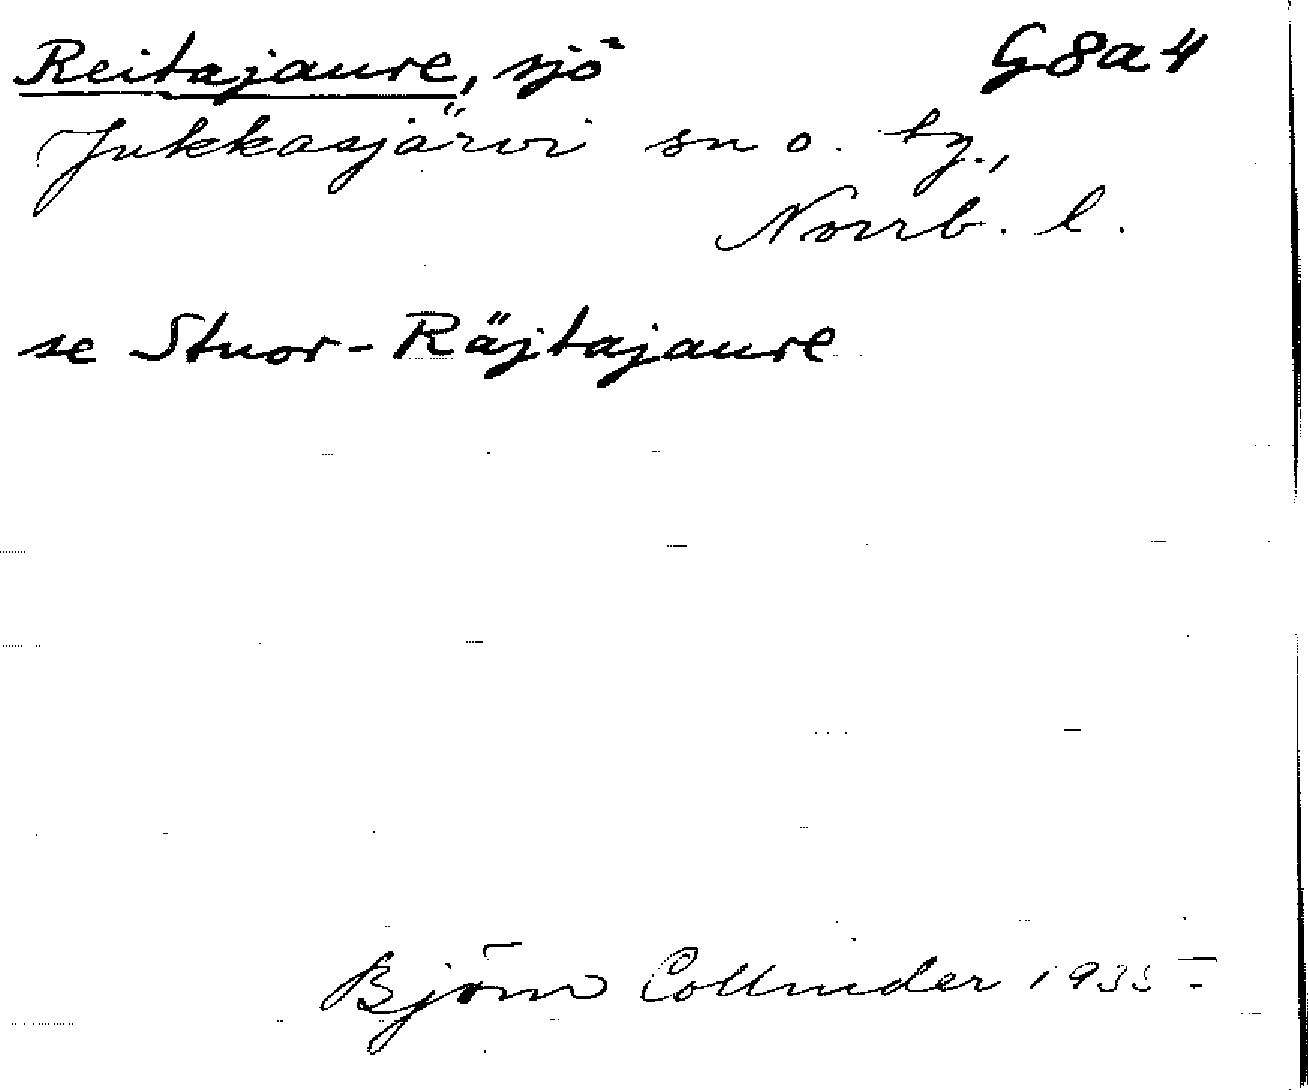 Reitajaure, sjö G8a4
Jukkasjärvi sn o. tg.,
Norrb. l.
se Stuor-Räjtajaure
Björn Collinder 1935